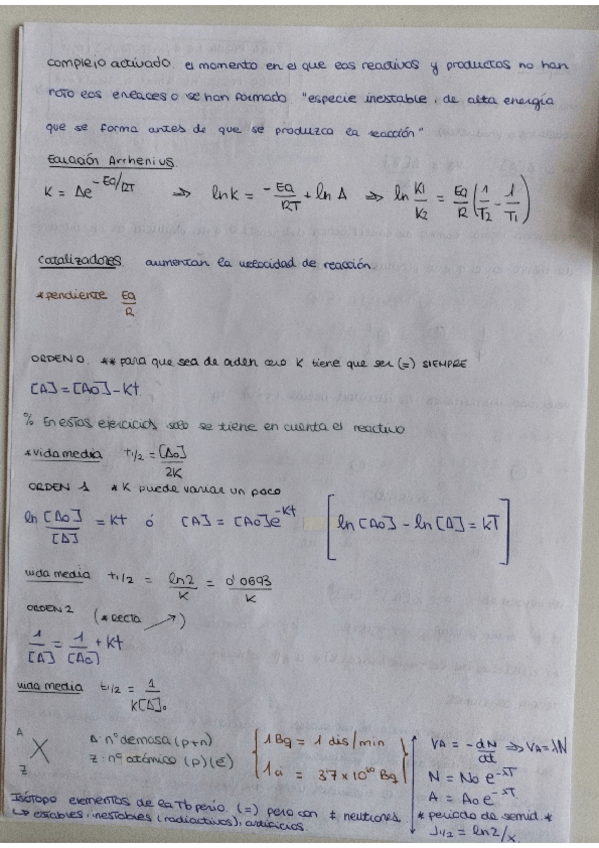 complejo activado. es momento en el que los reactivos y productos no han
roto los enlaces o se han formado "especie inestable, de alta energía
que se forma antes de que se produzca la reacción"
Ecuación Arrhenius.
K = Ae^-Ea/RT ⇒ lnK = -Ea/RT + ln A ⇒ ln K1/K2 = Ea/R (1/T2 - 1/T1)
Catalizadores. aumentan la velocidad de reacción.
*pendiente Ea/R
ORDEN 0. ** para que sea de orden cero K tiene que ser (=) SIEMPRE
[A]=[A0]-Kt
% En estos ejercicios solo se tiene en cuenta el reactivo
*vida media t1/2 = [A0]/2K
ORDEN 1 * K puede variar un poco
ln [A0]/[A] = Kt ó [A] = [A0]e^-Kt [ln[A0] - ln[A] = KT]
vida media t1/2 = ln2/K = 0'0693/K
ORDEN 2 (* RECTA ↗)
1/[A] = 1/[A0] + Kt
vida media t1/2 = 1/K[A]0
A Z X
A: nº de masa (p+n)
Z: nº atómico (p)(e-)
1 Bq = 1 dis/min
1 ci = 3'7 x 10^10 Bq
VA = -dN/dt ⇒ VA = λN
N = N0 e^-λT
A = A0 e^-λT
* periodo de semid. *
J1/2 = ln2/λ
Isótopo elementos de la Tb perio. (=) pero con ≠ neutrones.
↳ estables, inestables (radiactivos), artificios.